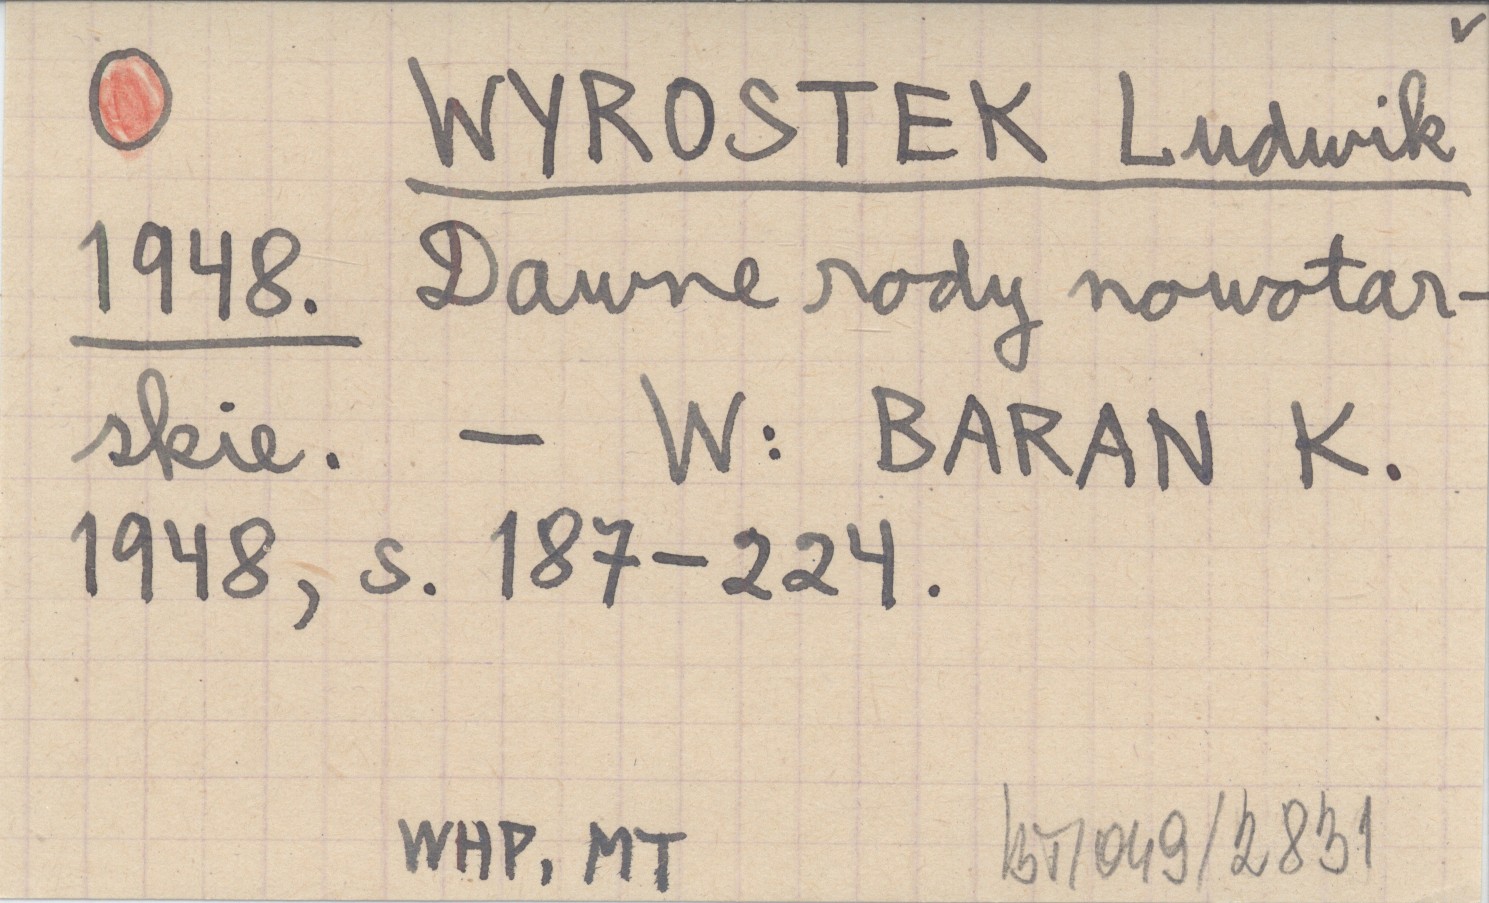 WYROSTEK Ludwik
1948. Dawne rody nowotar-
skie. — W: BARAN K.
1948, s. 187-224.
WHP, MT